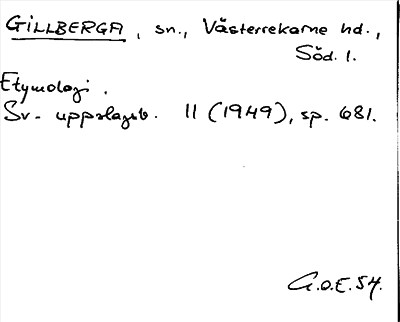 GILLBERGA, sn., Västerrekarne hd.,
Söd. l.
Etymologi.
Sv. uppslagsb. 11 (1949), sp. 681.
G.O.E. 54.